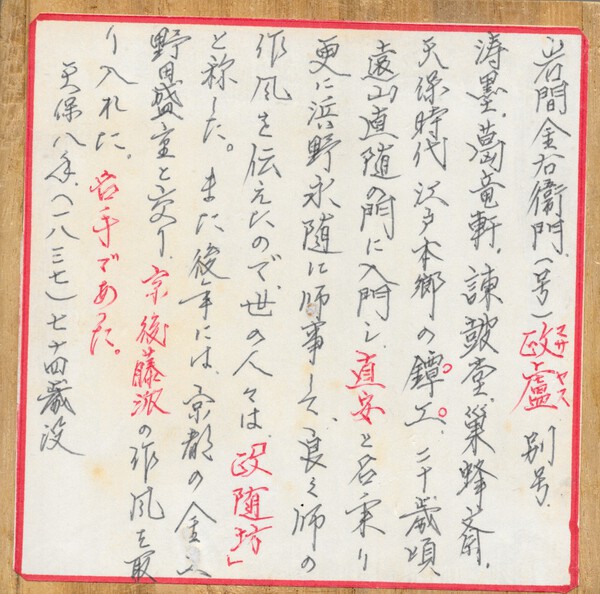 岩間金右衛門(号)政盧 マサヤス 別号
涛墨、葛竜軒、諌鼓堂、巣蜂斎、
天保時代 江戸本郷の鐔工、二十歳頃
遠山直随の門に入門し 直安と名乗り
更に浜野永随に師事して、良く師の
作風を伝えたので、世の人々は、「政随坊」
と称した。また後年には、京都の金工
野田盛重と交り、京後藤派の作風を取
り入れた。名手であった。
天保八年、(一八三七)七十四歳没